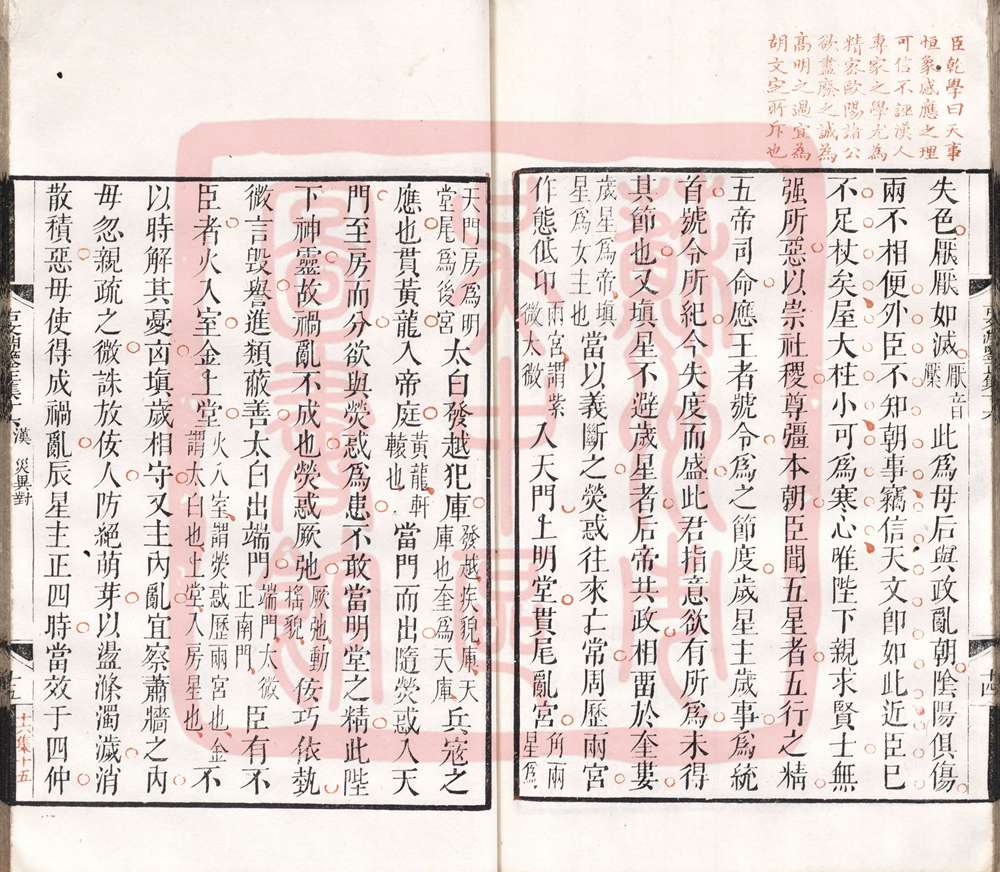 臣乾學曰天事
恒象感應之理
可信不誣漢人
專家之學尤為
精密歐陽諸公
欲盡廢之誠為
高明之過宜為
胡文定所斥也
失色厭厭如滅厭音黶此爲母后與政亂朝陰陽俱傷
兩不相便外臣不知朝事竊信天文卽如此近臣已
不足杖矣屋大柱小可爲寒心唯陛下親求賢士無
强所惡以崇社稷尊彊本朝臣聞五星者五行之精
五帝司命應王者號令爲之節度歲星主歲事爲統
首號令所紀今失度而盛此君指意欲有所爲未得
其節也又塡星不避歲星者后帝共政相畱於奎婁
歲星爲帝塡星爲女主也當以義斷之熒惑往來亡常周歷兩宮
作態低卬兩宮謂紫微太微入天門上明堂貫尾亂宮角兩星爲
天門房爲明堂尾爲後宮太白發越犯庫發越疾貌庫天庫也奎爲天庫兵寇之
應也貫黃龍入帝庭黃龍軒轅也當門而出隨熒惑入天
門至房而分欲與熒惑爲患不敢當明堂之精此陛
下神靈故禍亂不成也熒惑厥弛厥弛動搖貌佞巧依埶
微言毀譽進類蔽善太白出端門端門太微正南門臣有不
臣者火入室金上堂火入室謂熒惑歷兩宮也金謂太白也上堂入房星也不
以時解其憂凶塡歲相守又主內亂宜察蕭牆之內
毋忽親疏之微誅放佞人防絕萌芽以盪滌濁濊消
散積惡毋使得成禍亂辰星主正四時當效于四仲
漢 災異對
十四
十五
十六集十五